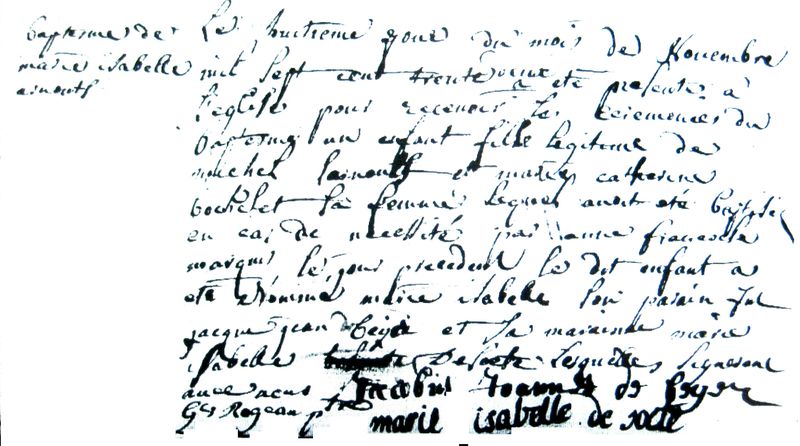 baptesme de
marie isabelle
ainouts
Le huitieme jour du mois de Novembre
mil sept cent trente a eté presenté à
l'eglise pour recevoir les ceremonies du
baptesme un enfant fille legitime de
michel et marie catherine
sa femme lequel avoit eté baptisé
en cas de necessité par anne francoise
le jour precedent le dit enfant a
eté nommé marie isabelle son parain fut
jacque jean et sa maraine marie
isabelle lesquelles signeront
avec nous
Jacobus Joannes de
marie isabelle de